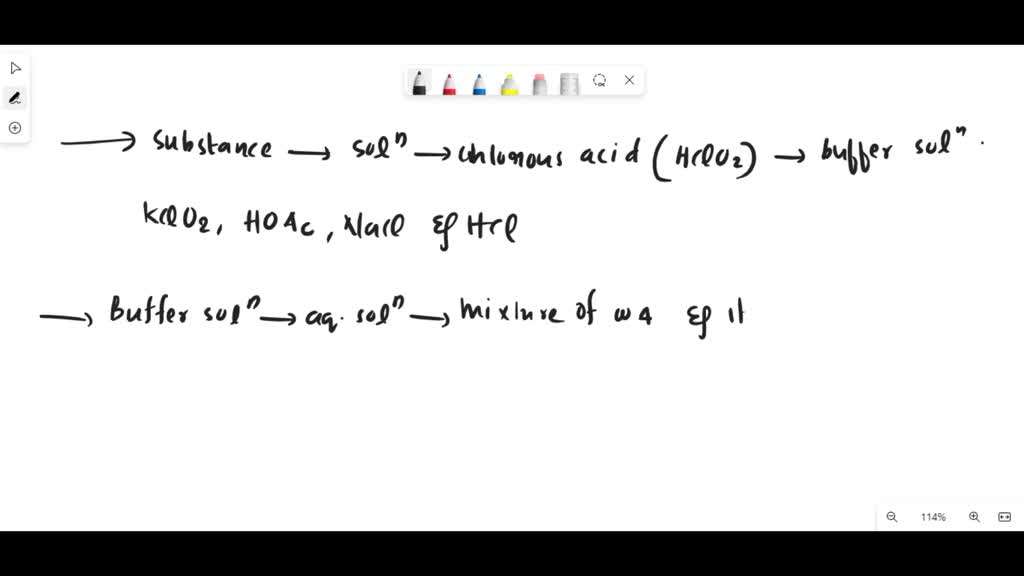 → substance → solⁿ → chlorous acid (HClO₂) → buffer solⁿ.
KClO₂, HOAc, NaCl & HCl
→ Buffer solⁿ → aq. solⁿ → mixture of WA & it
114%